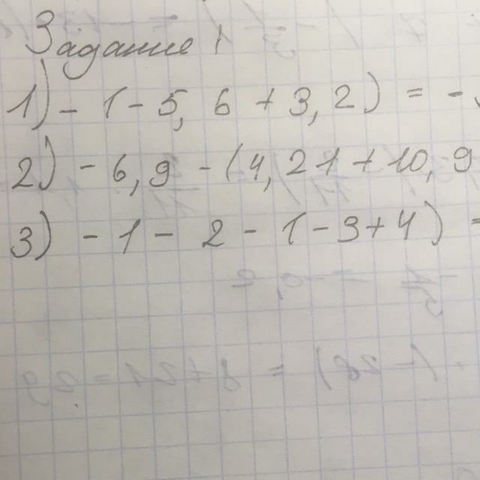 Задание 1
1) - (-5,6+3,2) = -
2) - 6,9 - (4,21+10,9
3) - 1 - 2 - (-3+4) =